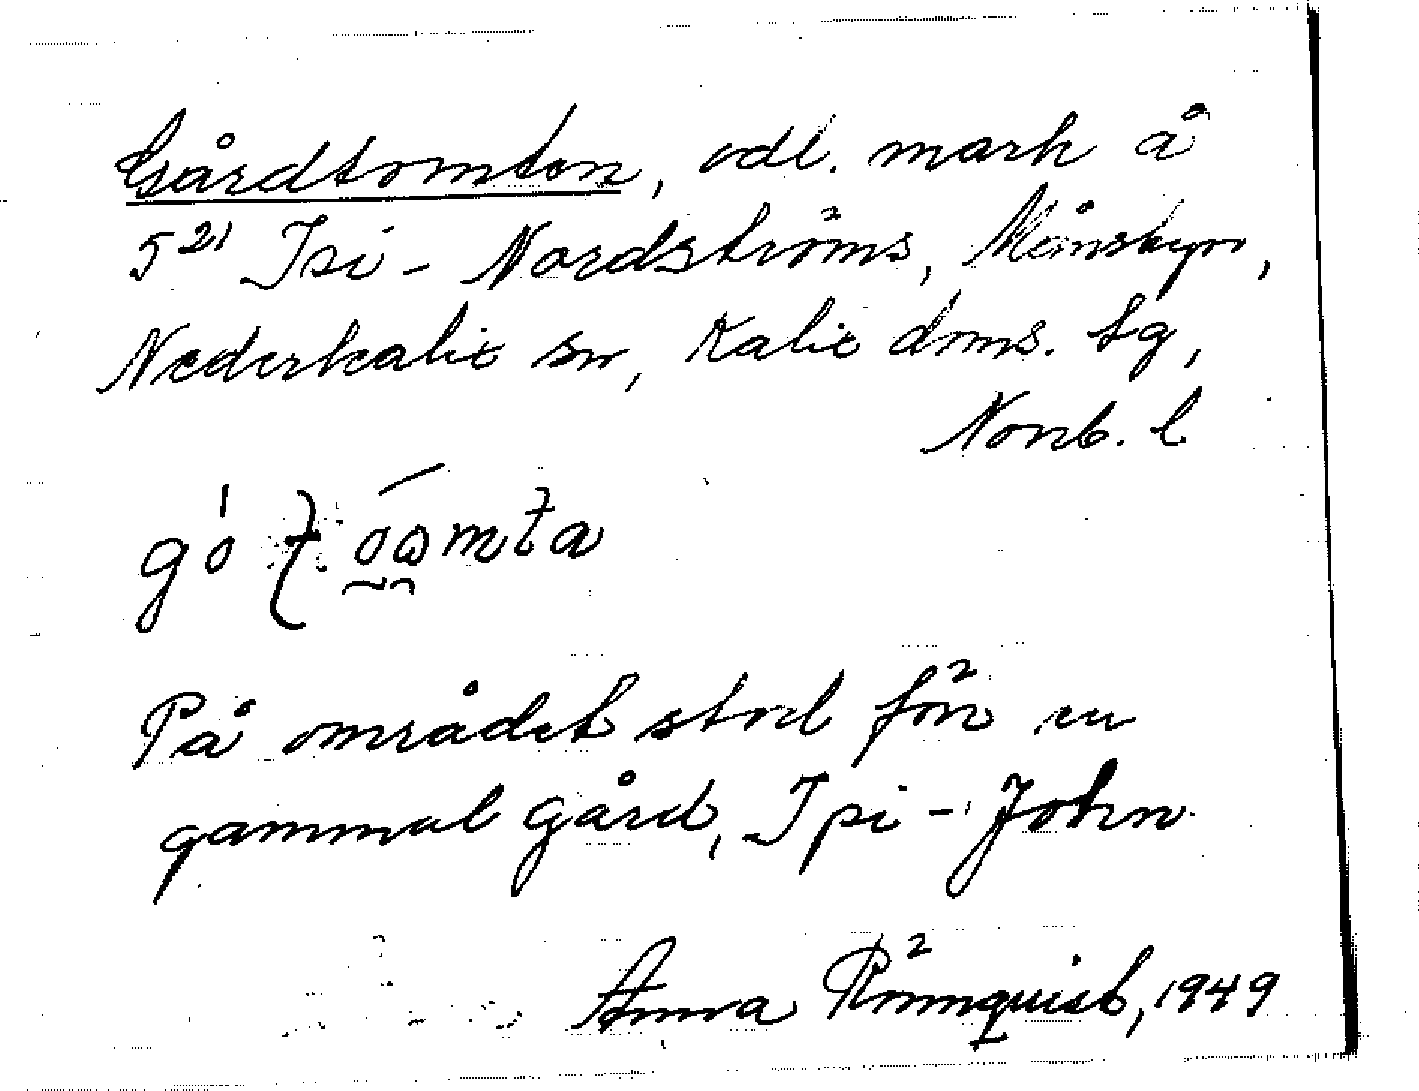 Gårdtomten, odl. mark å
5²¹ Ipi - Nordströms, Månsbyn,
Nederkalix sn, Kalix doms. tg,
Norrb. l
På området stod förr en
gammal gård, Ipi - John
Anna Rönnquist, 1949